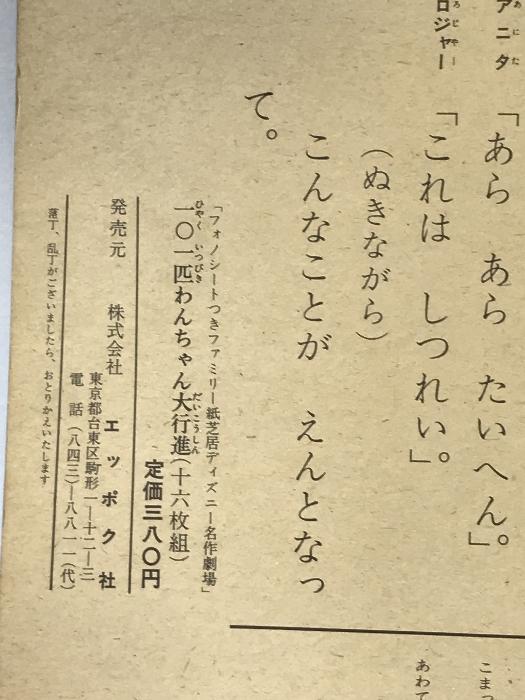 アニタ「あら　あら　たいへん。」
ロジャー「これは　しつれい。」
（ぬきながら）
こんなことが　えんとなっ
て。
「フォノシートつきファミリー紙芝居ディズニー名作劇場」
一〇一匹わんちゃん大行進（十六枚組）
定価三八〇円
発売元　株式会社　エッポク社
東京都台東区駒形一―十二―三
電話（八四三）―八八一一（代）
落丁、乱丁がございましたら、おとりかえいたします
こまっ
あわて